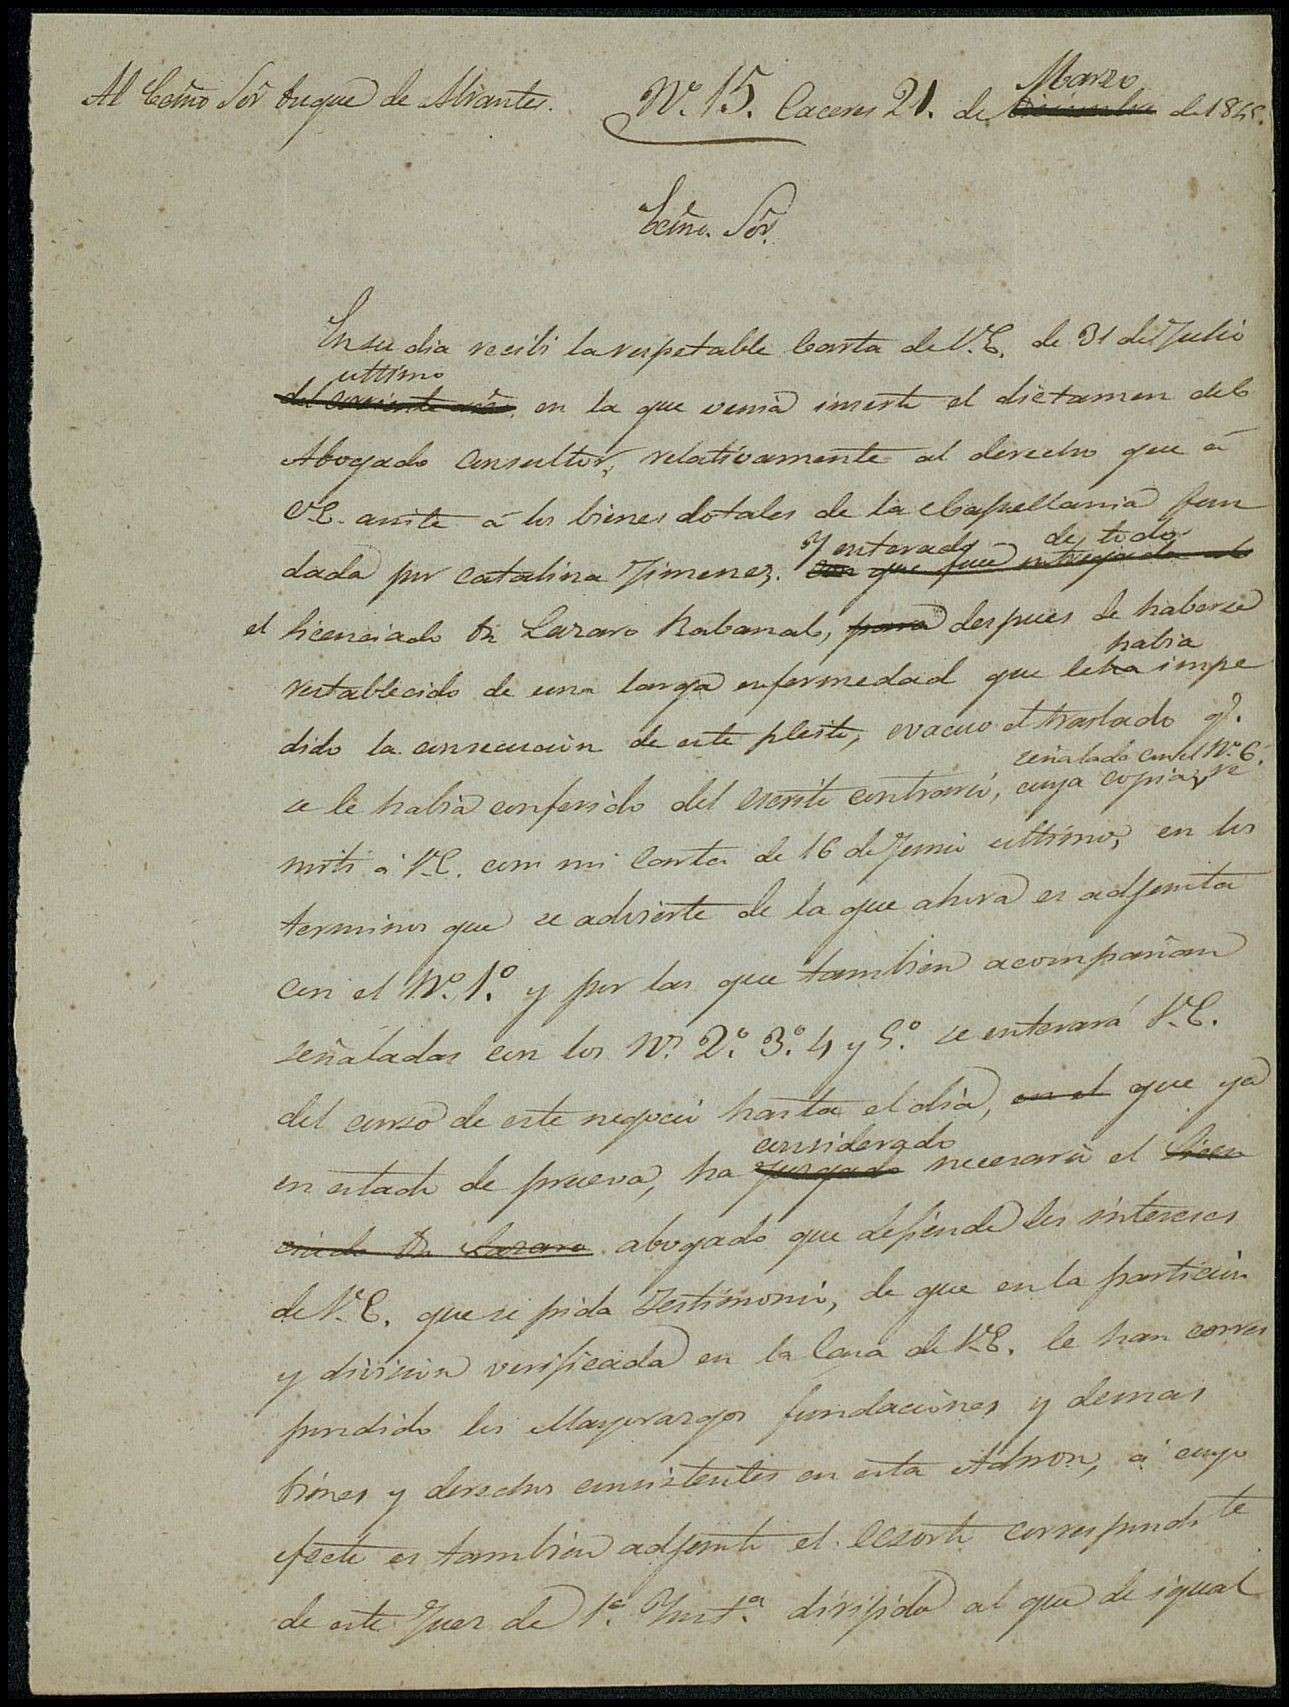 Al Ecmo Sor Duque de Abrantes. Nº. 15. Caceres 21. de Diciembre Marzo de 184
Ecmo. Sor.
En su dia recibi la respetable Carta de V.E. de 31 de Julio
del corriente año ultimo en la que venia inserto el dictamen del
Abogado Consultor, relativamente al derecho que á
V.E. asiste á los bienes dotales de la Capellania fun
dada por Catalina Jimenez. con que fue entregado al Y enterado de todo
el licenciado Dn Lazaro Rabanal, para despues de haberse
restablecido de una larga enfermedad que le ha habia impe
dido la consecucion de este pleito, evacuo el traslado q.
se le habia conferido del escrito contrario, cuya copia señalada con el Nº 6. re
miti á V.E. con mi Carta de 16 de Junio ultimo, en los
terminos que se advierte de la que ahora es adjunta
con el Nº. 1º. y por las que tambien acompañan
señaladas con los Nº 2º. 3º. 4 y 5º. se enterará V.E.
del curso de este negocio hasta el dia, en el que ya
en estado de prueva, ha juzgado considerado necesario el licen
ciado Dn Lazaro abogado que defiende los intereses
de V.E. que se pida Testimonio, de que en la particion
y division verificada en la Casa de V.E. le han corres
pondido los Mayorazgos fundaciones y demas
bienes y derechos consistentes en esta Admon, á cuyo
efecto es tambien adjunto el exorto correspondte
de este Juez de 1ª. Instª. dirijido al que de igual